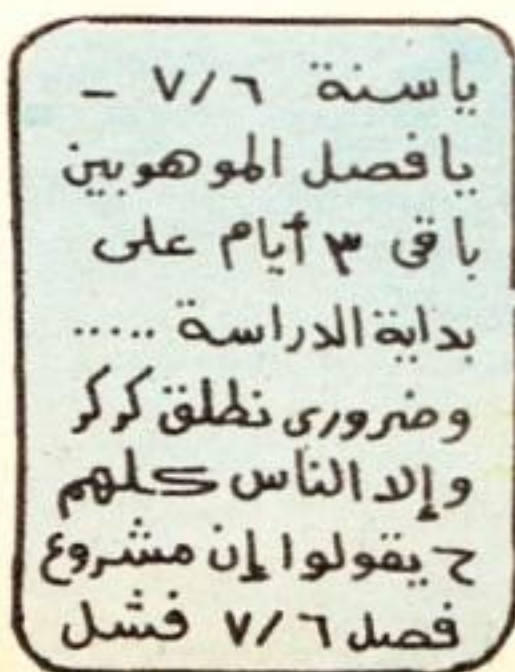 ياسنة ٧/٦ -
يافصل الموهوبين
باقى ٣ أيام على
بداية الدراسة .....
وضرورى نطلق كركر
وإلا الناس كلهم
ح يقولوا إن مشروع
فصل ٧/٦ فشل